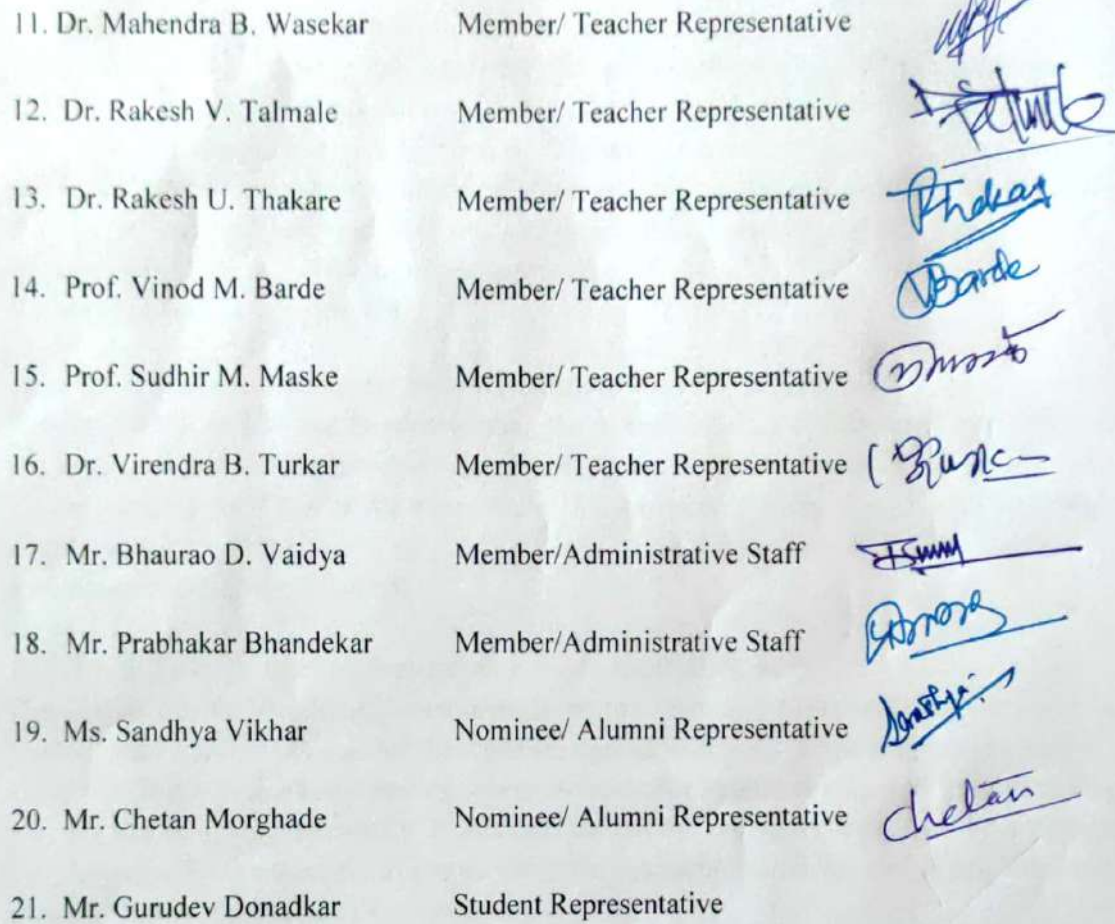 11. Dr. Mahendra B. Wasekar Member/ Teacher Representative
12. Dr. Rakesh V. Talmale Member/ Teacher Representative
13. Dr. Rakesh U. Thakare Member/ Teacher Representative
14. Prof. Vinod M. Barde Member/ Teacher Representative VBarde
15. Prof. Sudhir M. Maske Member/ Teacher Representative
16. Dr. Virendra B. Turkar Member/ Teacher Representative
17. Mr. Bhaurao D. Vaidya Member/Administrative Staff
18. Mr. Prabhakar Bhandekar Member/Administrative Staff
19. Ms. Sandhya Vikhar Nominee/ Alumni Representative
20. Mr. Chetan Morghade Nominee/ Alumni Representative Chetan
21. Mr. Gurudev Donadkar Student Representative